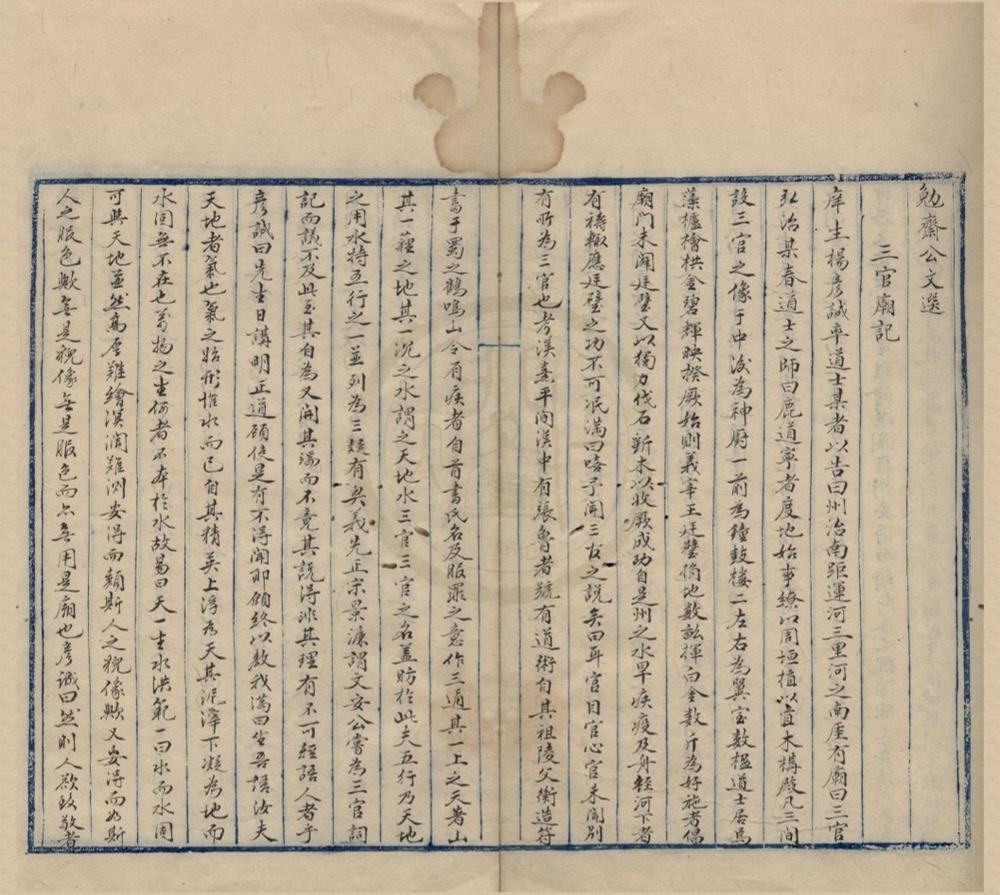 勉齋公文選
三官廟記
庠生楊彥誠率道士某者以告曰州治南距運河三里河之南厓有廟曰三官
弘治某春道士之師曰鹿道寧者度地始事繚以周垣植以宜木構殿凡三間
設三官之像于中後為神廚一前為鐘鼓樓二左右為翼室數楹道士居焉
藻櫨檜栱金碧輝映揆厥始則義宰王廷璧脩地數畝揮白金數斤為好施者倡
廟門未闢廷璧又以獨力伐石斲木以收厥成功自是州之水旱疾疫及舟經河下者
有禱輙應廷璧之功不可泯滿曰嘻予聞三友之說矣曰耳官目官心官未聞別
有所為三官也考漢熹平間漢中有張魯者號有道術自其祖陵父衡造符
書于蜀之鶴鳴山令有疾者自首書氏名及服罪之意作三通其一上之天著山
其一薶之地其一沉之水謂之天地水三官三官之名蓋昉於此夫五行乃天地
之用水特五行之一並列為三疑有奧義先正宋景濂謂文安公嘗為三官詞
記而議不及此至其自為又開其端而不竟其說得非其理有不可經語人者乎
彥誠曰先生日講明正道顧使是有不得聞耶願終以教我滿曰坐吾語汝夫
天地者氣也氣之始形惟水而已自其精英上浮為天其泥滓下凝為地而
水固無不在也萬物之生何者不本於水故易曰天一生水洪範一曰水而水固
可與天地並然高厚難繪溟濶難測安得而類斯人之貌像歟又安得而如斯
人之服色歟無是貌像無是服色而亦無用是廟也彥誠曰然則人欲致敬者